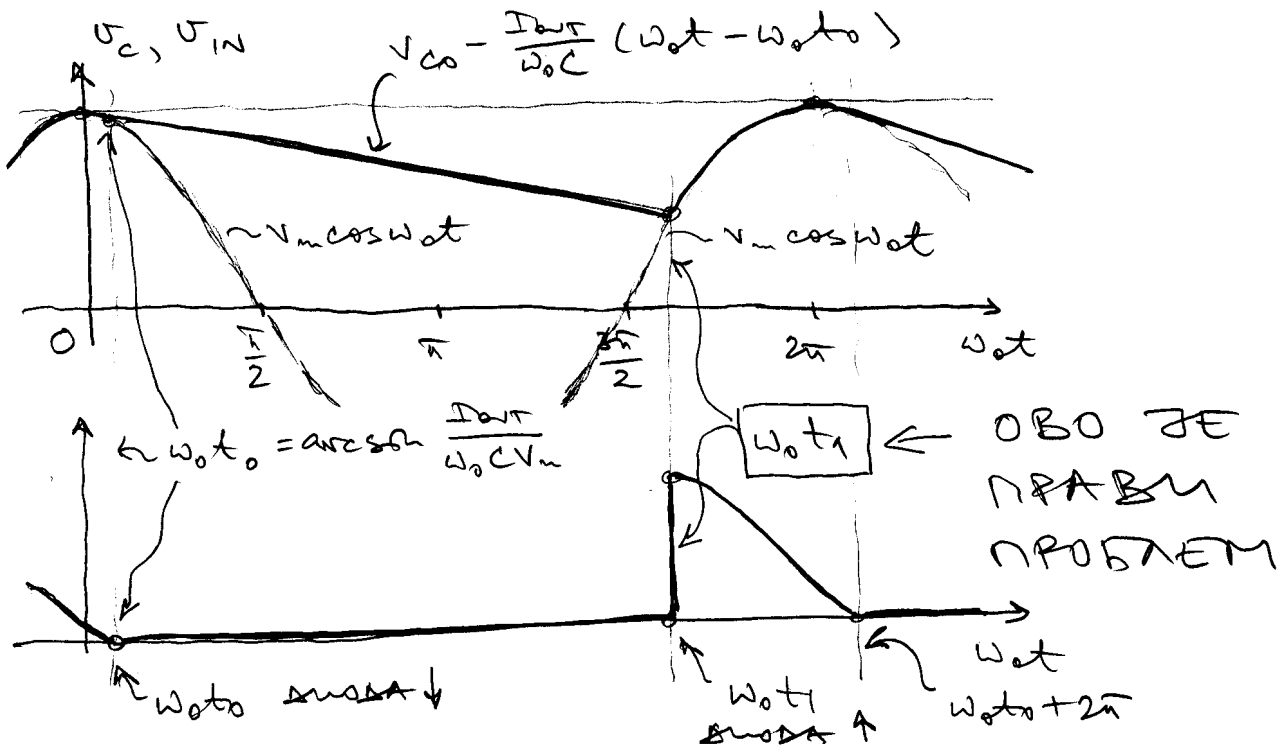 v_C, v_IN
v_C0 - I_OUT / ω₀C (ω₀t - ω₀t₀)
~V_m cos ω₀t
~V_m cos ω₀t
0
π/2
π
3π/2
2π
ω₀t
ω₀t₀ = arcsin I_OUT / ω₀CV_m
ω₀t₁
⇐ ОВО ЈЕ
ПРАВИ
ПРОБЛЕМ
ω₀t
ω₀t₀ ДИОДА ↓
ω₀t₁
ДИОДА ↑
ω₀t₀+2π